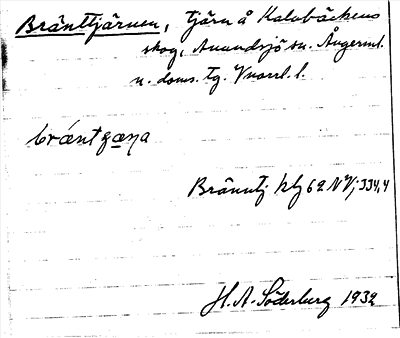 Bränttjärnen, tjärn å Kalvbäckens
skog, Anundsjö sn. Ångerml.
n. doms. tg. Vnorrl. l.
brántʒæṇa
Bränntj ktg 62 NV; 334,4
H. A. Söderberg 1932